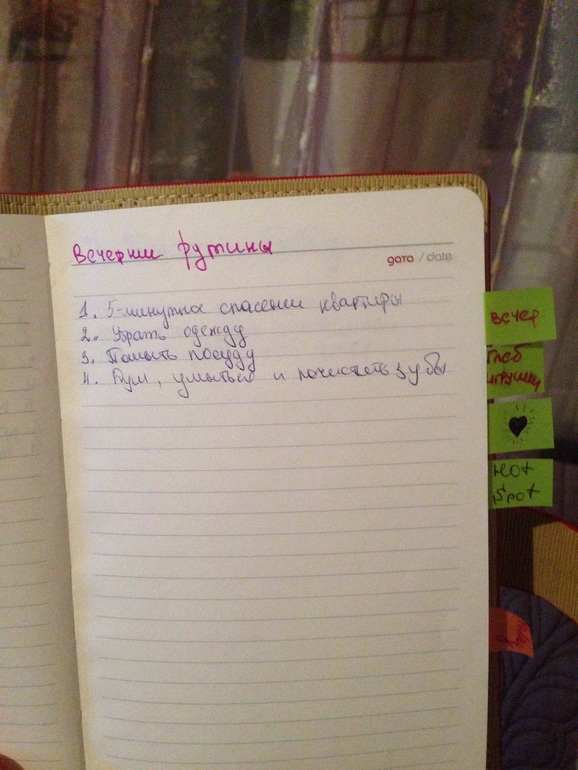 Вечерние рутины
дата / date
1. 5-минутное спасение квартиры
2. Убрать одежду
3. Помыть посуду
4. Душ, умыться и почистить зубы
вечер
Глеб
игрушки
Hot
Spot